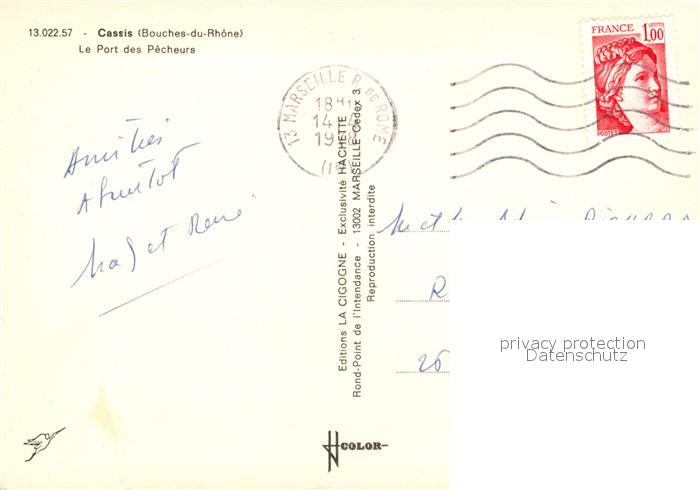 13.022.57 - Cassis (Bouches-du-Rhône)
Le Port des Pêcheurs
FRANCE 1,00
POSTES
13 MARSEILLE R. DE ROME
18 H
14
19
Amitiés
A bientôt
et René
Editions LA CIGOGNE - Exclusivité HACHETTE
Rond-Point de l'Intendance - 13002 MARSEILLE Cedex 3
Reproduction interdite
M et
R
26
privacy protection
Datenschutz
COLOR